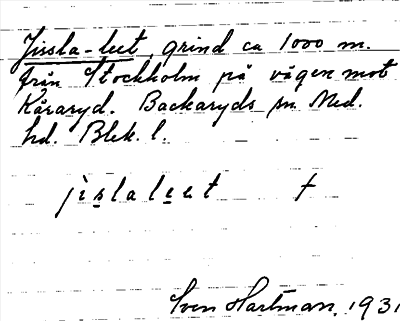 Jissla-leet, grind ca 1000 m.
från Stockholm på vägen mot
Kåraryd. Backaryds sn Med.
hd. Blek. l.
jìslaleet †
Sven Hartman. 1931